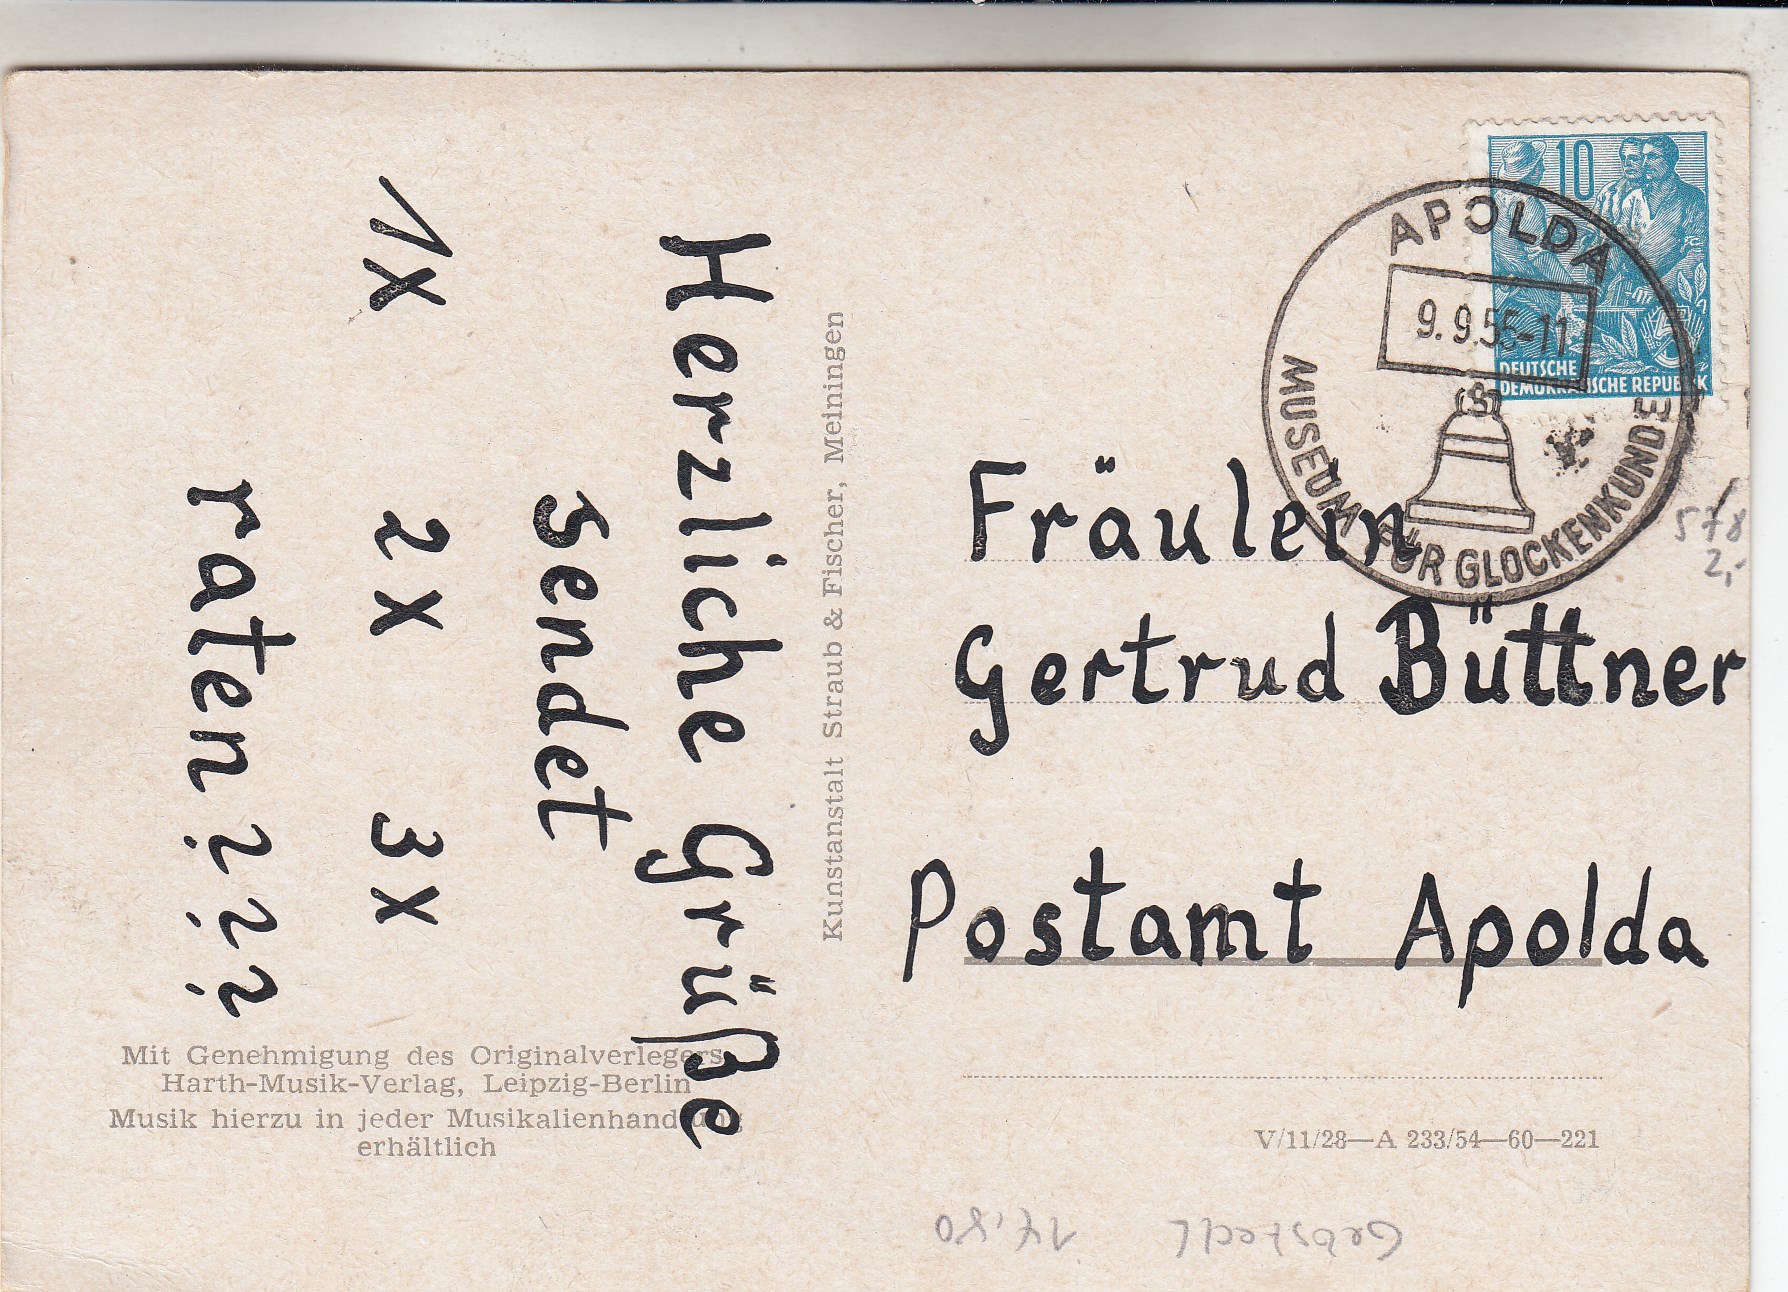 Herzliche Grüße
sendet
1x 2x 3x
raten ? ? ?
Mit Genehmigung des Originalverlegers
Harth-Musik-Verlag, Leipzig-Berlin
Musik hierzu in jeder Musikalienhandlung
erhältlich
Kunstanstalt Straub & Fischer, Meiningen
10
DEUTSCHE
DEMOKRATISCHE REPUBLIK
APOLDA
9.9.55-11
MUSEUM FÜR GLOCKENKUNDE
578
2,-
Fräulein
Gertrud Büttner
Postamt Apolda
V/11/28—A 233/54—60—221